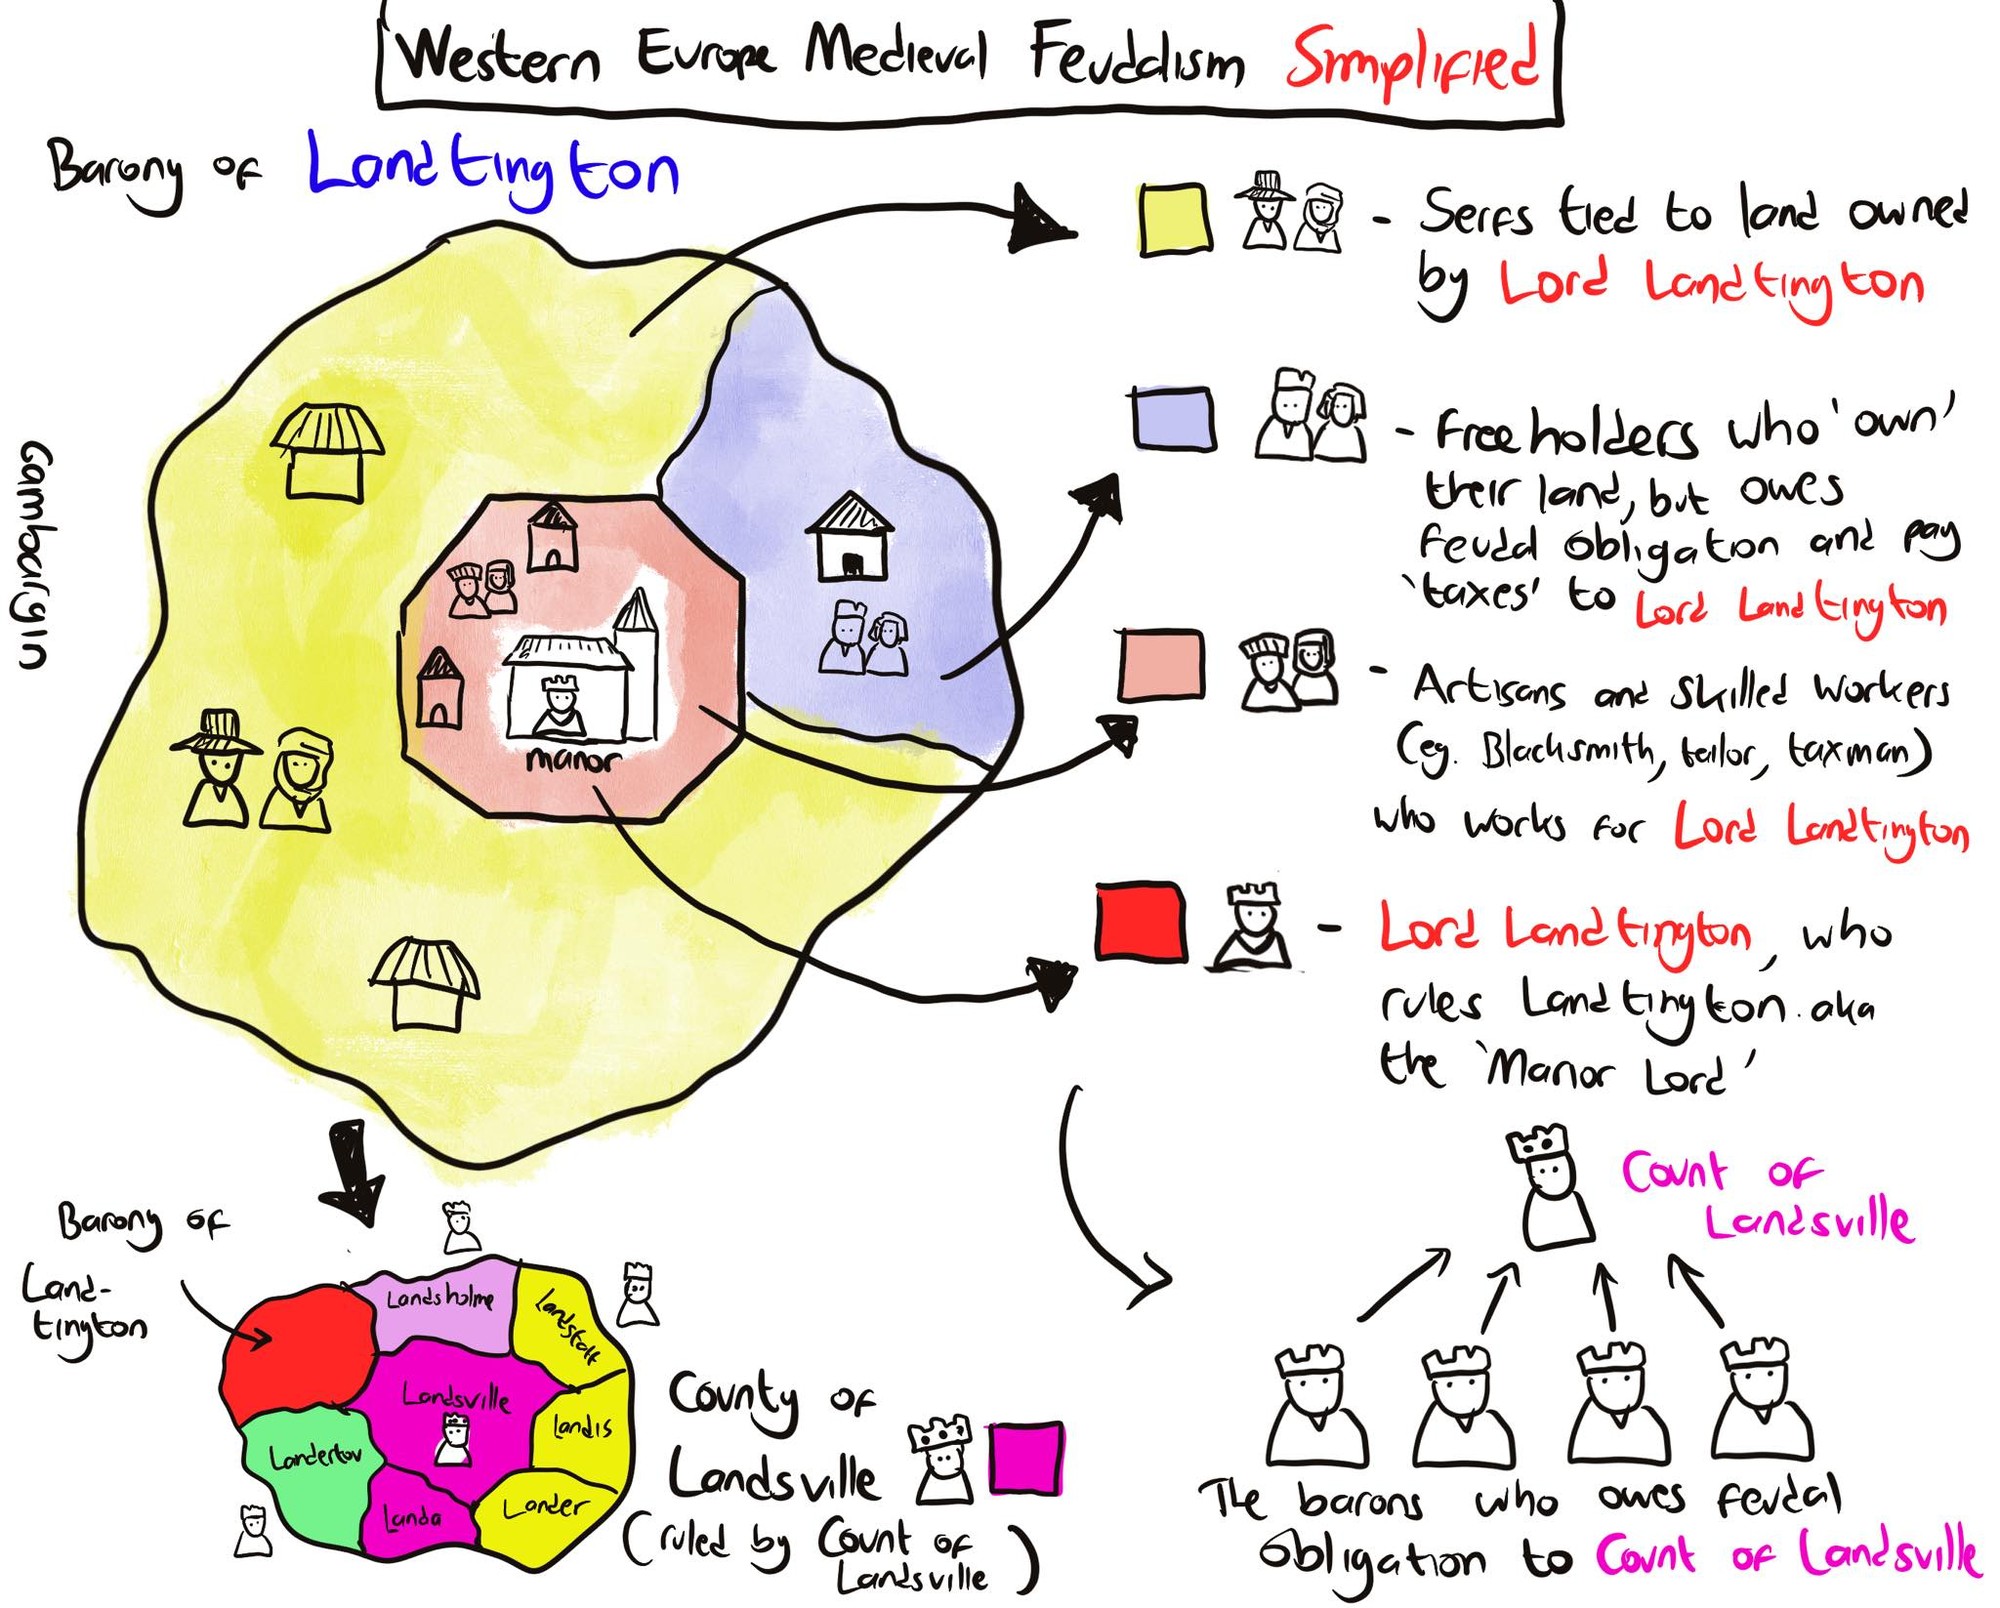 Western Europe Medieval Feudalism Simplified
Barony of Landtington
Gambargin
manor
- Serfs tied to land owned
by Lord Landtington
- Freeholders who 'own'
their land, but owes
feudal obligation and pay
'taxes' to Lord Landtington
- Artisans and Skilled Workers
(eg. Blacksmith, tailor, taxman)
who works for Lord Landtington
- Lord Landtington, who
rules Landtington. aka
the 'Manor Lord'
Barony of
Land-
tington
Landsholme
Landstott
Landsville
Landis
Landertov
Landa
Lander
County of
Landsville
(ruled by Count of
Landsville)
Count of
Landsville
The barons who owes feudal
obligation to Count of Landsville